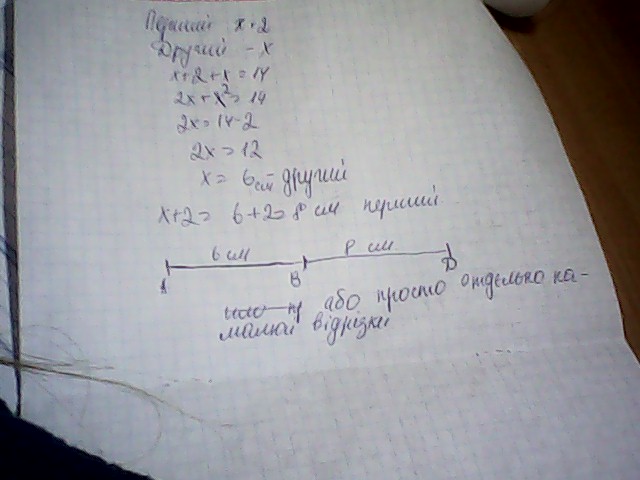 Перший x+2
Другий - x
x+2+x=14
2x+x²=14
2x=14-2
2x=12
x= 6см другий
x+2= 6+2=8 см перший
6 см 8 см
A B D
або просто отдельно на-
малюй відрізки